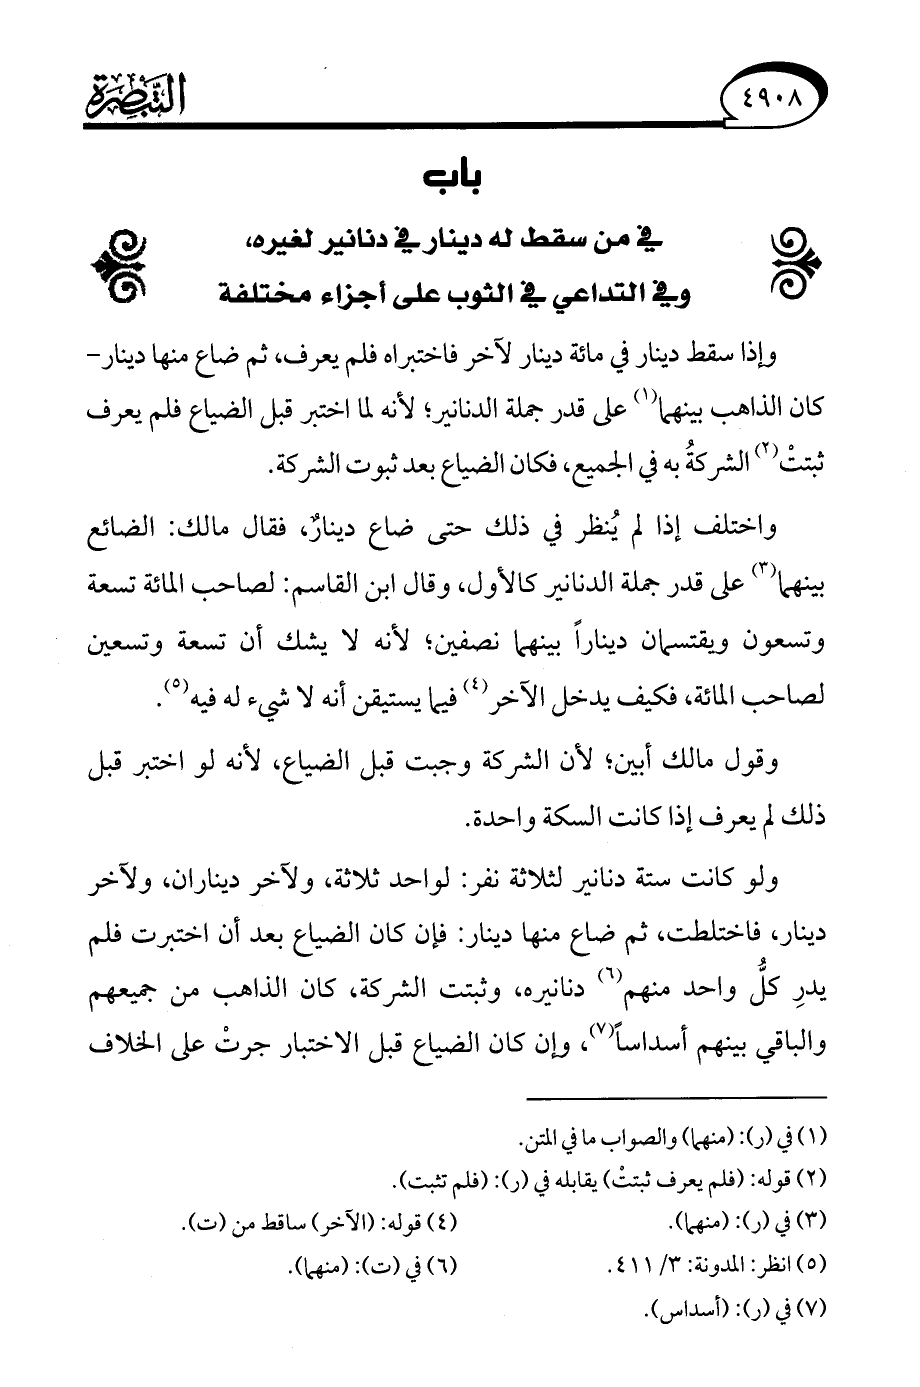 ٤٩٠٨
التبصرة
باب
في من سقط له دينار في دنانير لغيره،
وفي التداعي في الثوب على أجزاء مختلفة
وإذا سقط دينار في مائة دينار لآخر فاختبراه فلم يعرف، ثم ضاع منها دينار–
كان الذاهب بينهما(١) على قدر جملة الدنانير؛ لأنه لما اختبر قبل الضياع فلم يعرف
ثبتتْ(٢) الشركةُ به في الجميع، فكان الضياع بعد ثبوت الشركة.
واختلف إذا لم يُنظر في ذلك حتى ضاع دينارٌ، فقال مالك: الضائع
بينهما(٣) على قدر جملة الدنانير كالأول، وقال ابن القاسم: لصاحب المائة تسعة
وتسعون ويقتسمان ديناراً بينهما نصفين؛ لأنه لا يشك أن تسعة وتسعين
لصاحب المائة، فكيف يدخل الآخر(٤) فيما يستيقن أنه لا شيء له فيه(٥).
وقول مالك أبين؛ لأن الشركة وجبت قبل الضياع، لأنه لو اختبر قبل
ذلك لم يعرف إذا كانت السكة واحدة.
ولو كانت ستة دنانير لثلاثة نفر: لواحد ثلاثة، ولآخر ديناران، ولآخر
دينار، فاختلطت، ثم ضاع منها دينار: فإن كان الضياع بعد أن اختبرت فلم
يدرِ كلُّ واحد منهم(٦) دنانيره، وثبتت الشركة، كان الذاهب من جميعهم
والباقي بينهم أسداساً(٧)، وإن كان الضياع قبل الاختبار جرتْ على الخلاف
(١) في (ر): (منهما) والصواب ما في المتن.
(٢) قوله: (فلم يعرف ثبتتْ) يقابله في (ر): (فلم تثبت).
(٣) في (ر): (منهما). (٤) قوله: (الآخر) ساقط من (ت).
(٥) انظر: المدونة: ٣/ ٤١١. (٦) في (ت): (منهما).
(٧) في (ر): (أسداس).